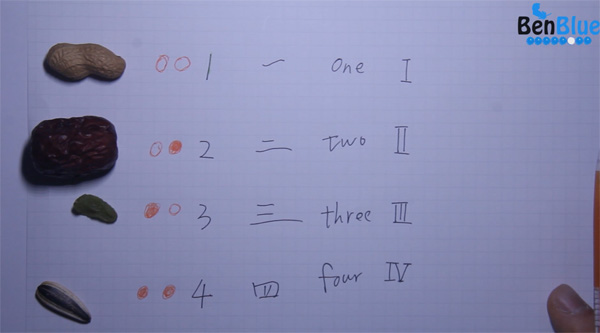 BenBlue
1 一 one I
2 二 two II
3 三 three III
4 四 four IV